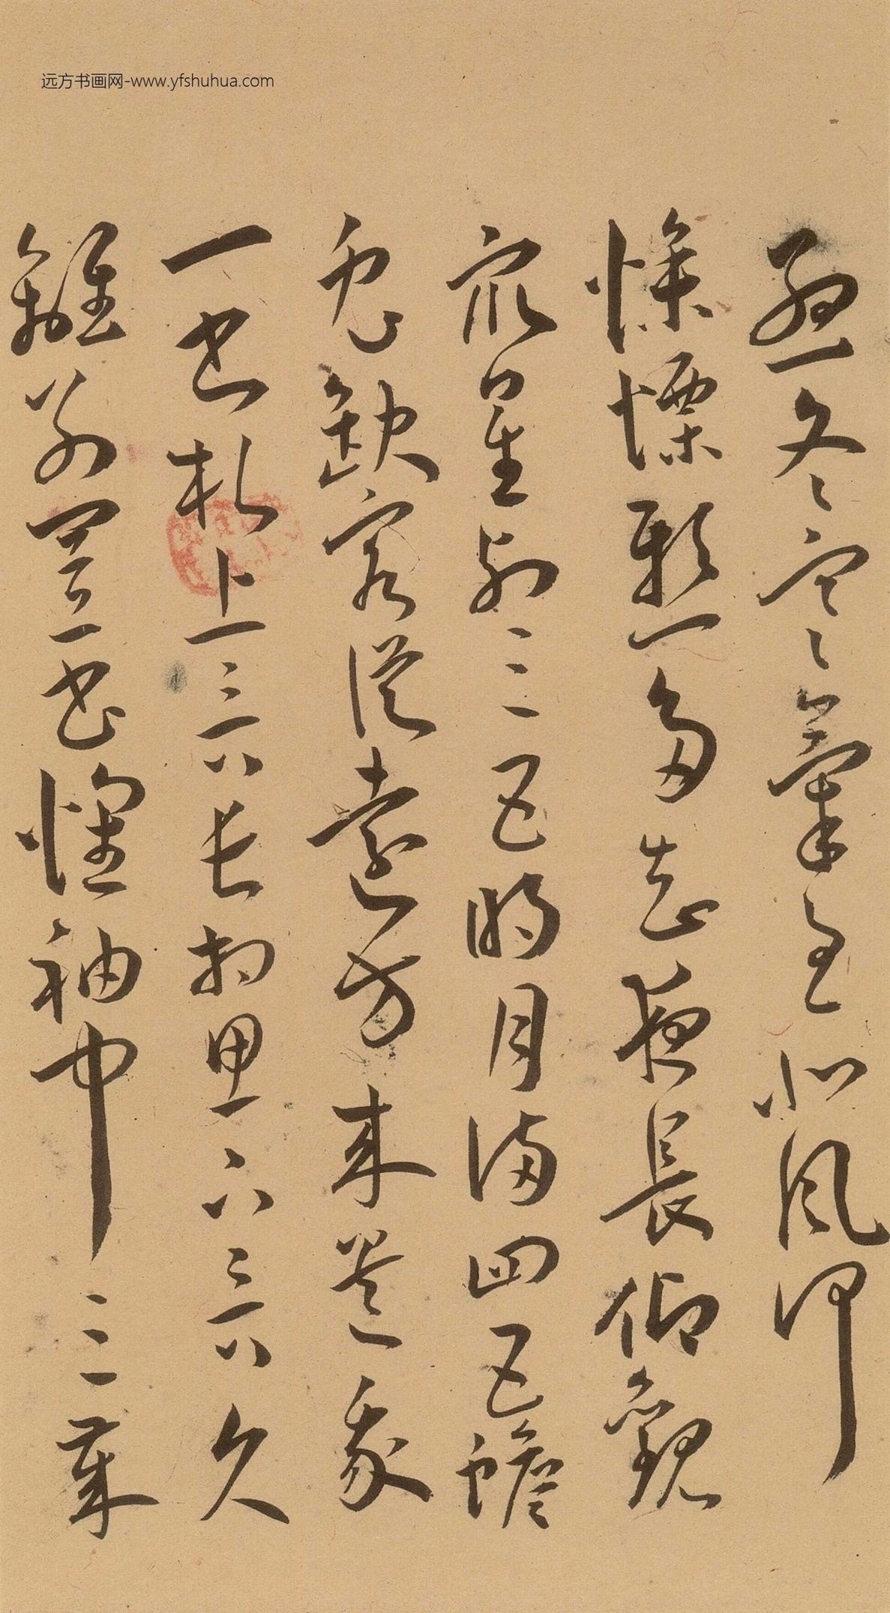 远方书画网-www.yfshuhua.com
孟冬寒氣至北風何
慘慄愁多知夜長仰觀
眾星列三五明月滿四五蟾
兔缺客從遠方來遺我
一書札上言長相思下言久
離別置書懷袖中三歲